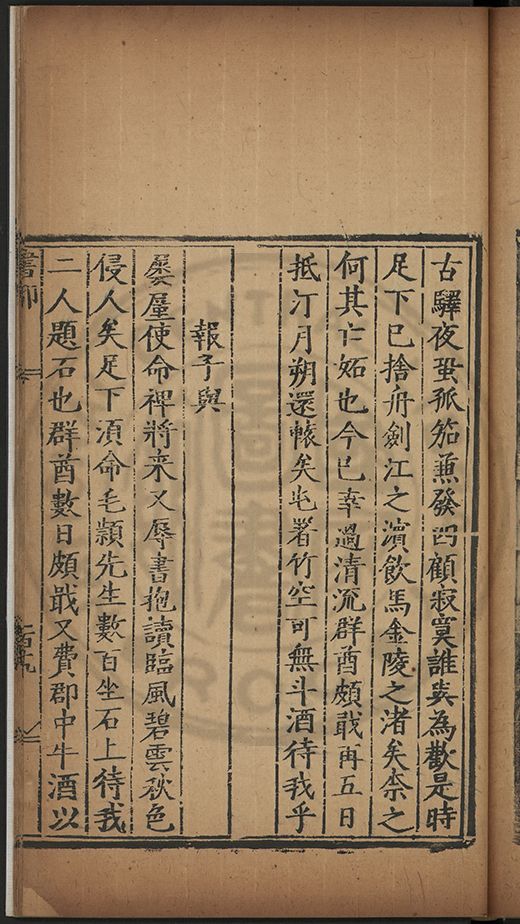 古驛夜蛩孤笳兼發四顧寂寞誰與為歡是時
足下已捨舟劍江之濱飲馬金陵之渚矣柰之
何其亡妬也今已幸過清流群酋頗戢再五日
抵汀月朔還轅矣屯署竹空可無斗酒待我乎
報子與
屢屢使命裨將来又辱書抱讀臨風碧雲秋色
侵人矣足下湏命毛頴先生數百坐石上待我
二人題石也群酋數日頗戢又費郡中牛酒以